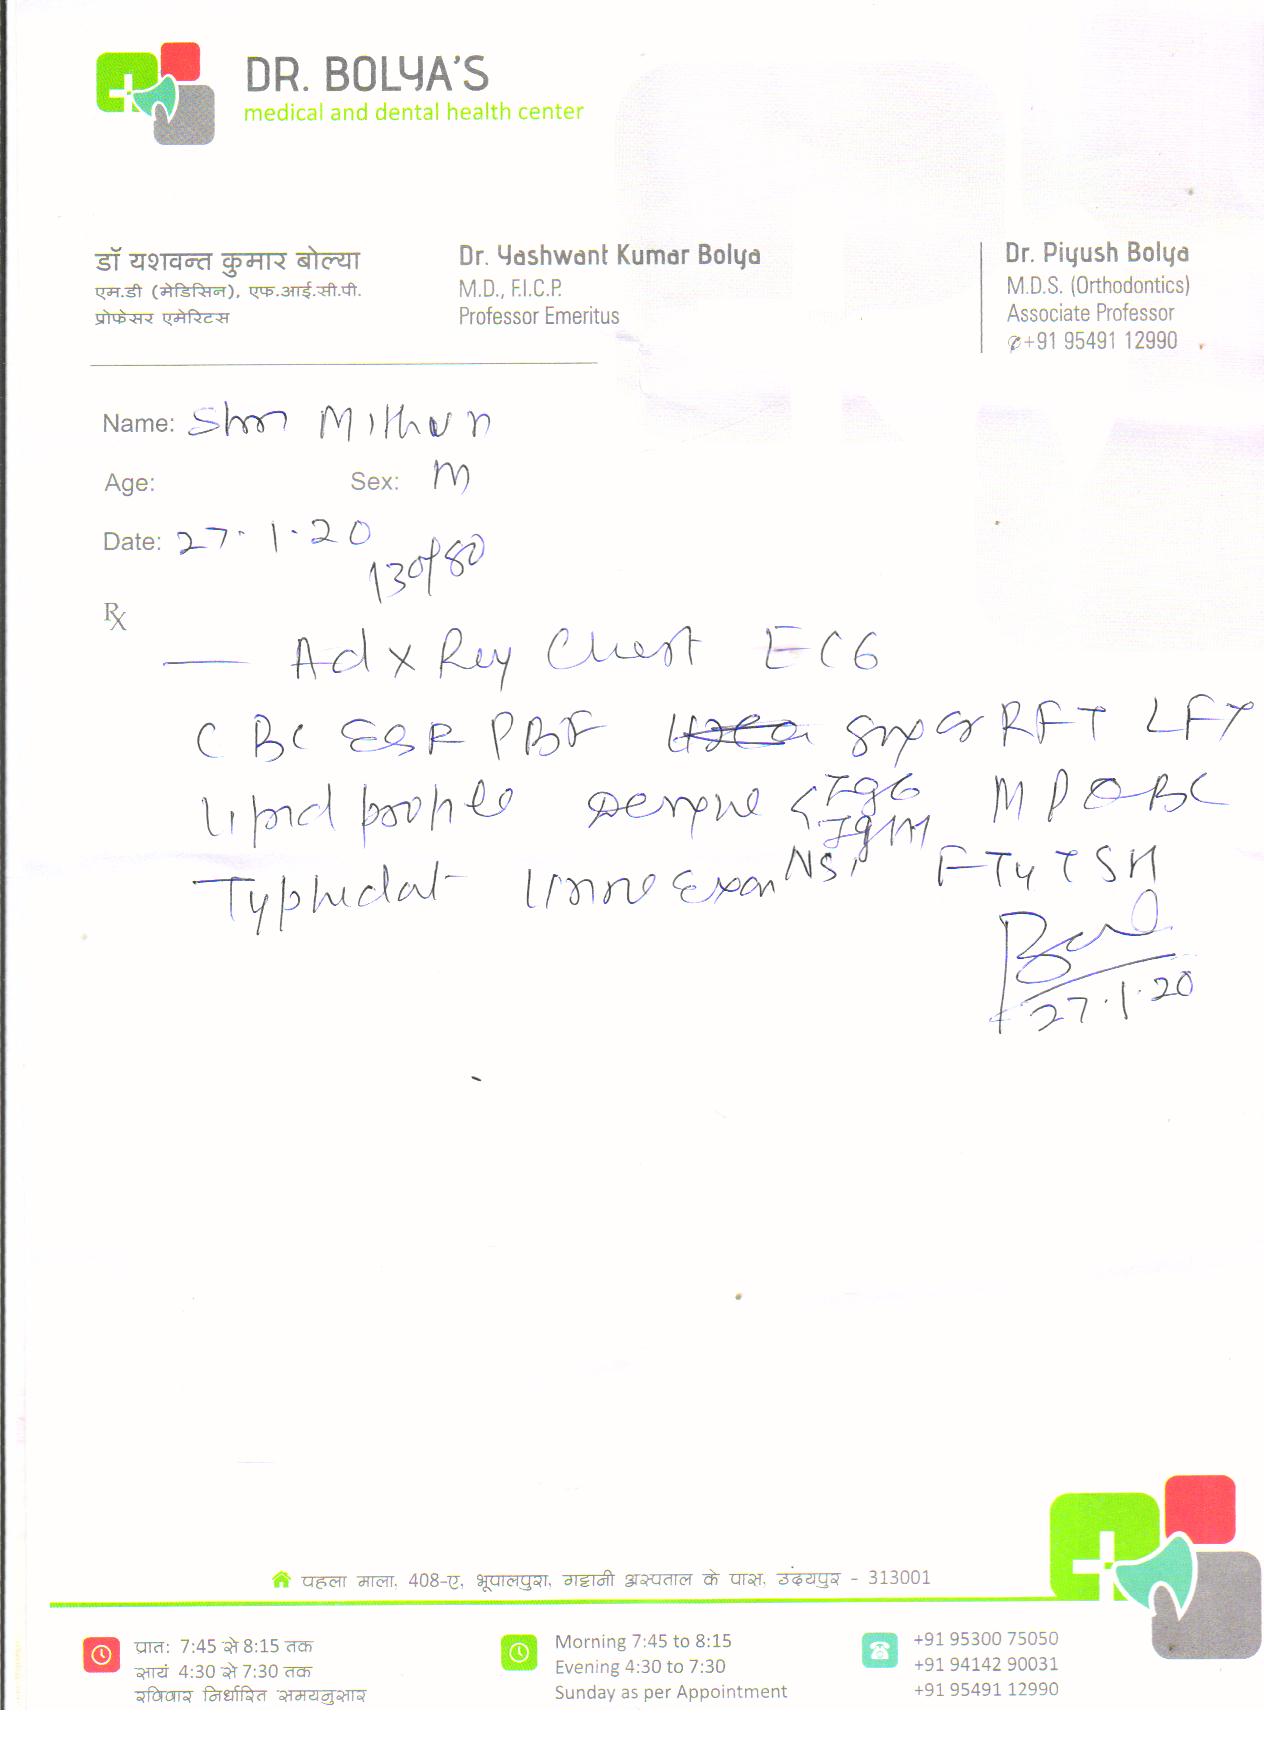 DR. BOLYA'S
medical and dental health center
डॉ यशवन्त कुमार बोल्या
एम.डी (मेडिसिन), एफ.आई.सी.पी.
प्रोफेसर एमेरिटस
Dr. Yashwant Kumar Bolya
M.D., F.I.C.P.
Professor Emeritus
Dr. Piyush Bolya
M.D.S. (Orthodontics)
Associate Professor
+91 95491 12990
Name: Shri Mithun
Age: Sex: M
Date: 27.1.20
130/80
Rx
Ad X Ray Chest ECG
CBC ESR PBF RFT LFT
Lipid profile Dengue < IgG MP QBC
IgM
Typhidot Urine Exam NS1 FT4 TSH
27.1.20
पहला माला, 408-ए, भूपालपुरा, गट्टानी अस्पताल के पास, उदंयपुर - 313001
प्रात: 7:45 से 8:15 तक
सायं 4:30 से 7:30 तक
रविवार निर्धारित समयनुसार
Morning 7:45 to 8:15
Evening 4:30 to 7:30
Sunday as per Appointment
+91 95300 75050
+91 94142 90031
+91 95491 12990